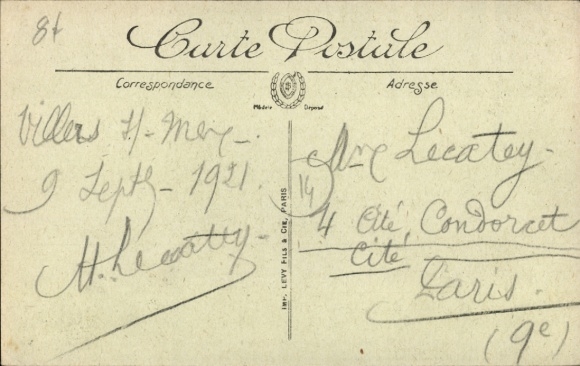 8f
Carte Postale
Correspondance
Adresse
Modèle Déposé
Villers s/- Mer -
9 Septb - 1921.
H. Lecattey -
IMP. LEVY FILS & CIE, PARIS
Mme Lecatey -
14
4 Cité, Condorcet
Cité
Paris.
(9e)